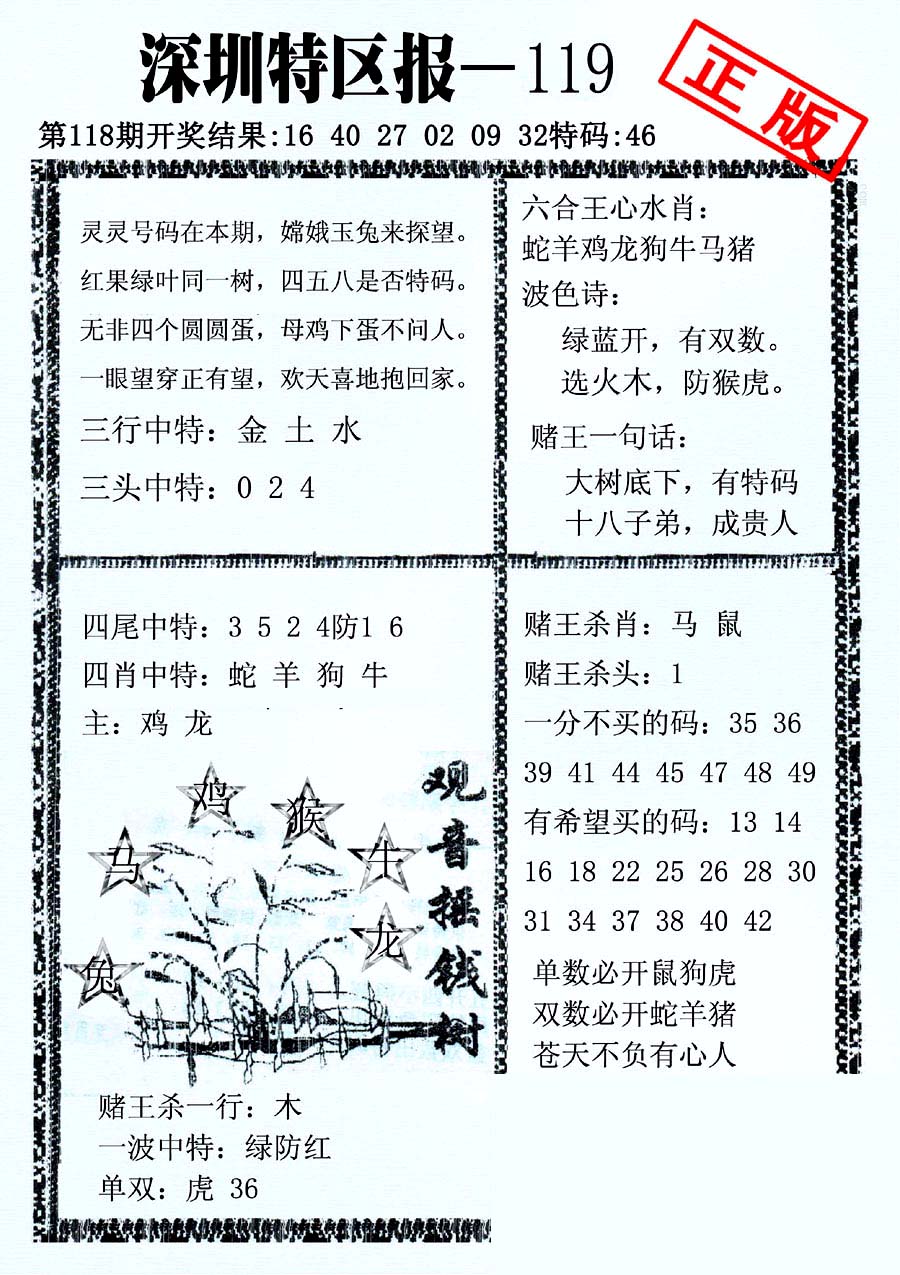 深圳特区报—119
正版
第118期开奖结果:16 40 27 02 09 32特码:46
灵灵号码在本期，嫦娥玉兔来探望。
红果绿叶同一树，四五八是否特码。
无非四个圆圆蛋，母鸡下蛋不问人。
一眼望穿正有望，欢天喜地抱回家。
三行中特：金 土 水
三头中特：0 2 4
六合王心水肖：
蛇羊鸡龙狗牛马猪
波色诗：
绿蓝开，有双数。
选火木，防猴虎。
赌王一句话：
大树底下，有特码
十八子弟，成贵人
四尾中特：3 5 2 4防1 6
四肖中特：蛇 羊 狗 牛
主：鸡 龙
鸡
猴
马
牛
龙
兔
观音摇钱树
赌王杀一行：木
一波中特：绿防红
单双：虎 36
赌王杀肖：马 鼠
赌王杀头：1
一分不买的码：35 36
39 41 44 45 47 48 49
有希望买的码：13 14
16 18 22 25 26 28 30
31 34 37 38 40 42
单数必开鼠狗虎
双数必开蛇羊猪
苍天不负有心人